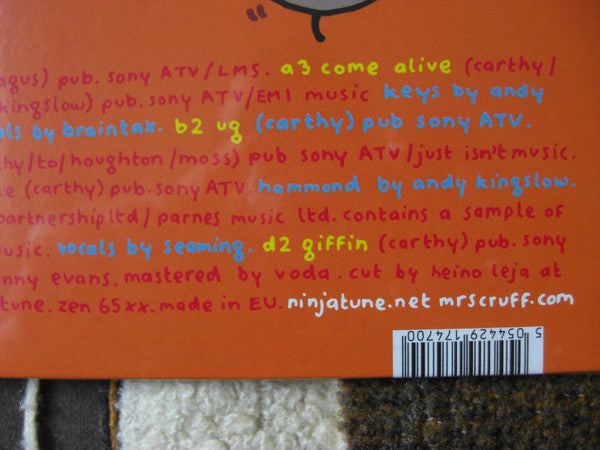 agus) pub. sony ATV/LMS. a3 come alive (carthy/
kingslow) pub. sony ATV/EMI music keys by andy
als by braintax. b2 ug (carthy) pub sony ATV.
hy/to/houghton/moss) pub sony ATV/just isn't music.
le (carthy) pub. sony ATV. hammond by andy kingslow.
partnership ltd/parnes music ltd. contains a sample of
music. vocals by seaming. d2 giffin (carthy) pub. sony
nny evans. mastered by voda. cut by heino leja at
tune. zen 65xx. made in EU. ninjatune.net mrscruff.com
5 054429 174700